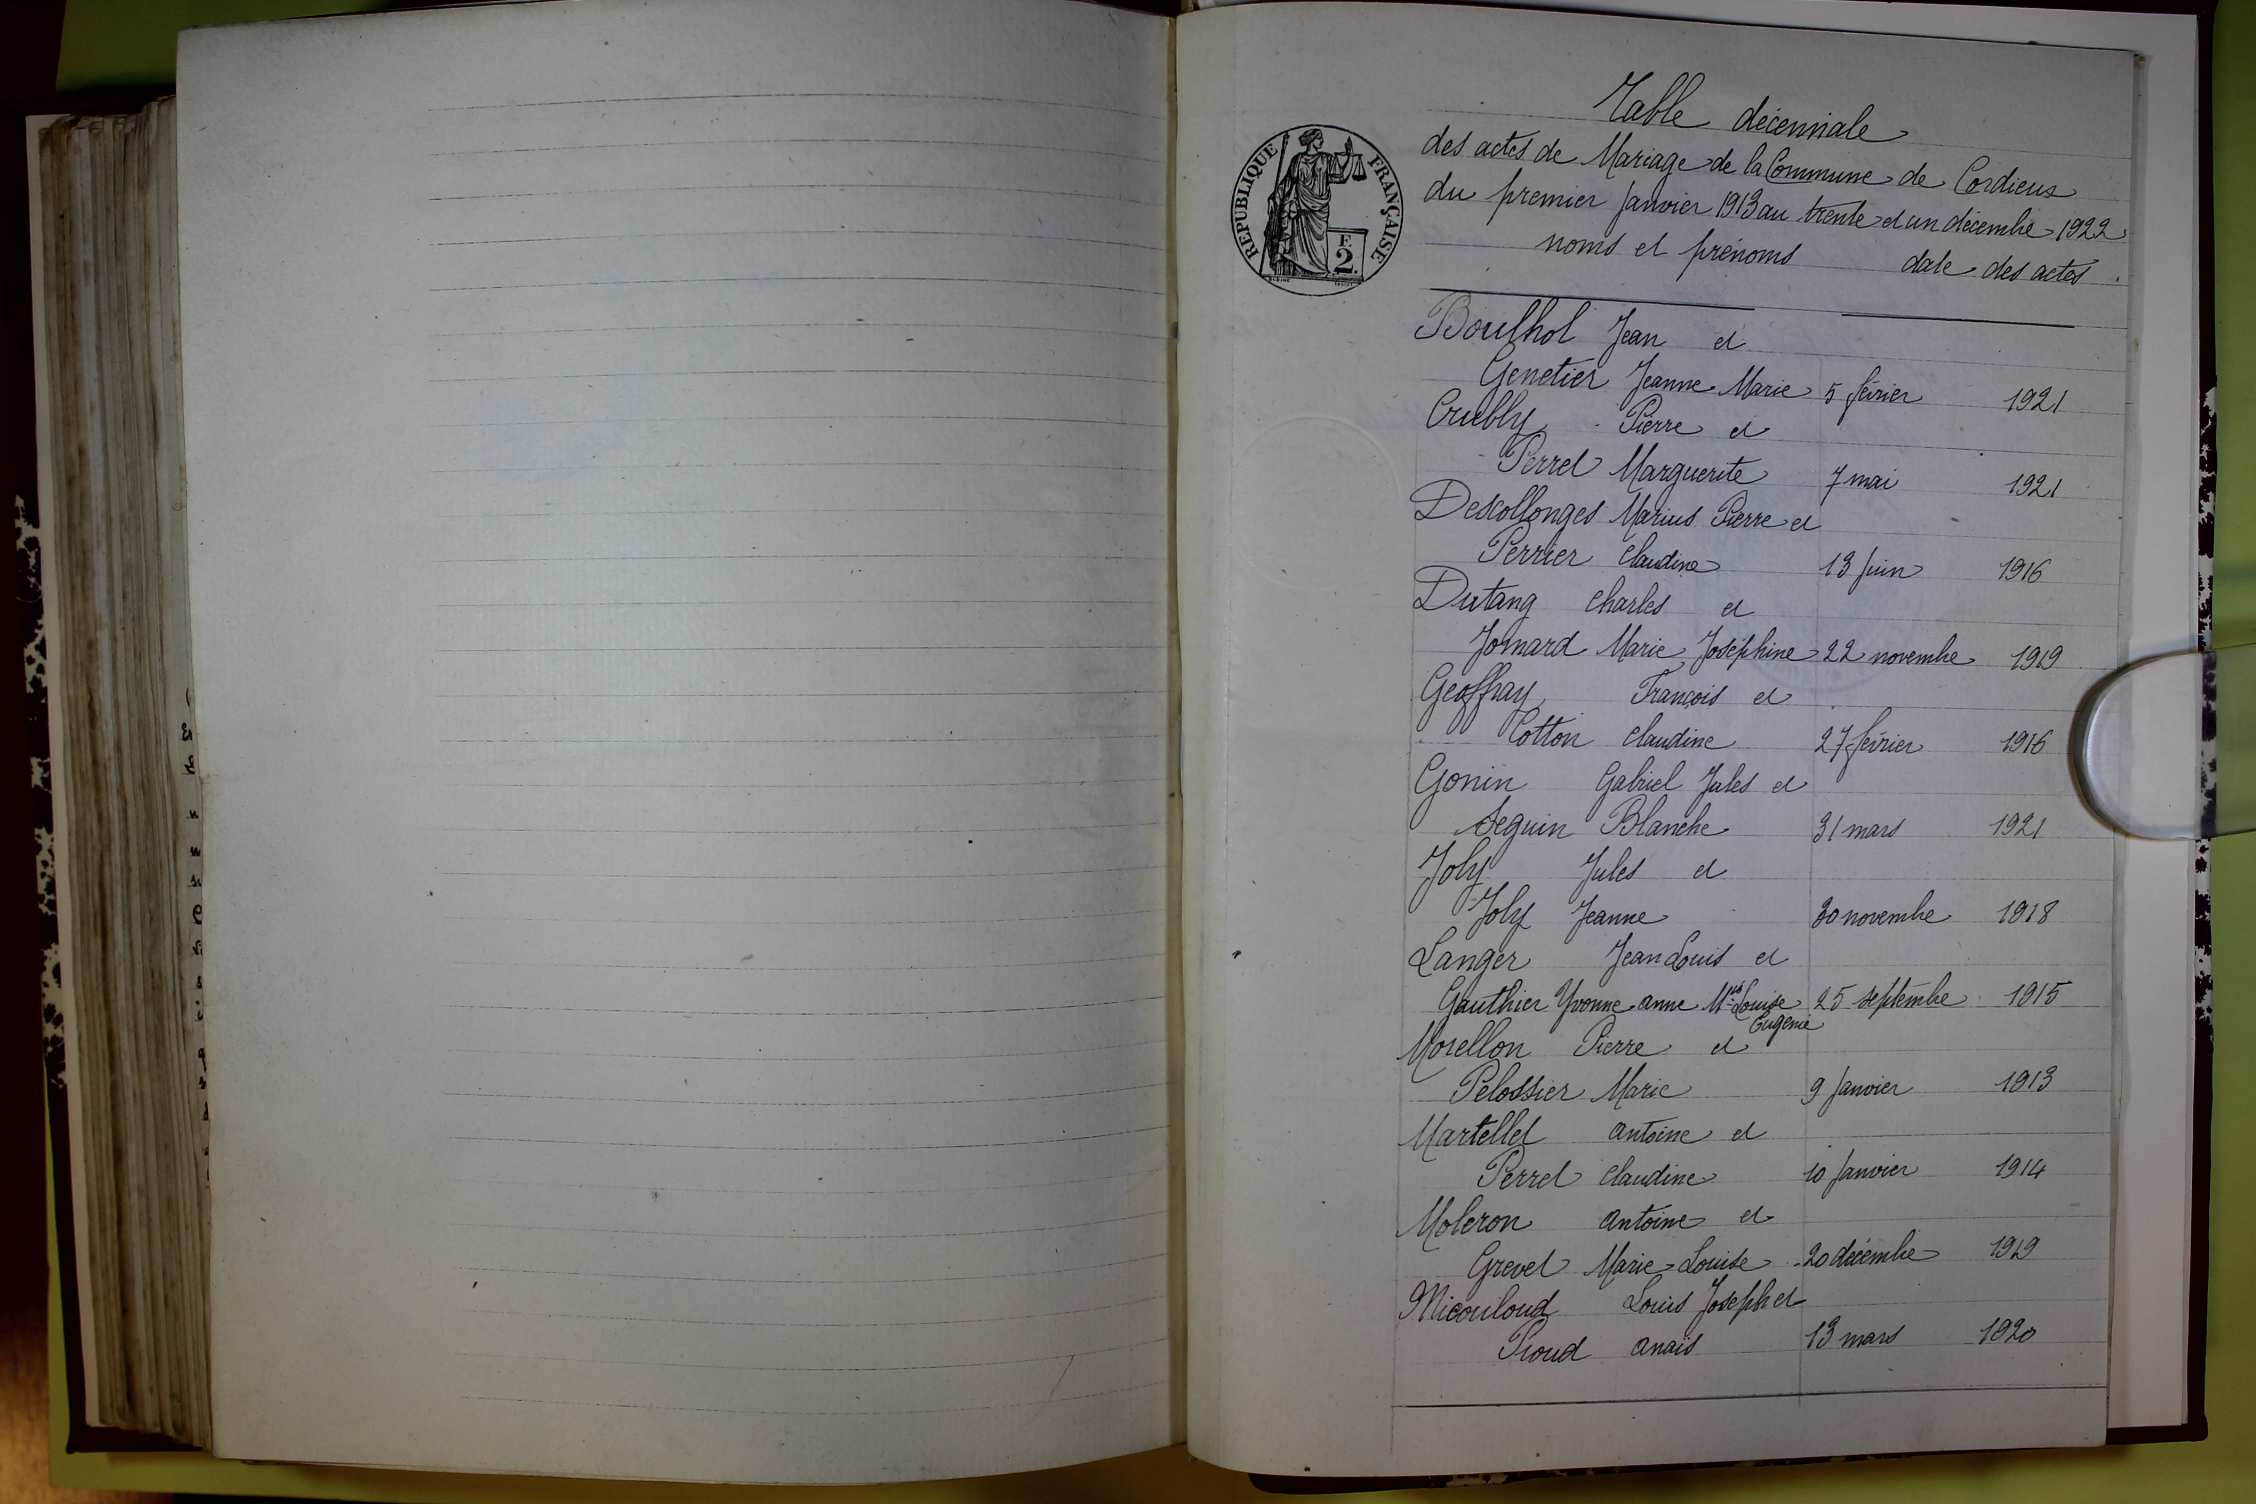 RÉPUBLIQUE FRANÇAISE
F.
2.
Table décennale
des actes de Mariage de la Commune de Cordieux
du premier Janvier 1913 au trente et un décembre 1922
noms et prénoms date des actes
Boulhol Jean et
Genetier Jeanne Marie 5 février 1921
Crubly Pierre et
Perret Marguerite 7 mai 1921
Descollonges Marius Pierre et
Perrier Claudine 13 Juin 1916
Dutang Charles et
Jomard Marie Joséphine 22 novembre 1919
Geoffray François et
Cotton Claudine 27 février 1916
Gonin Gabriel Jules et
Seguin Blanche 31 mars 1921
Joly Jules et
Joly Jeanne 30 novembre 1918
Langer Jean Louis et
Gauthier Yvonne anne Mie Louise 25 septembre 1915
Eugenie
Morellon Pierre et
Pelossier Marie 9 Janvier 1913
Martellet antoine et
Perret Claudine 10 Janvier 1914
Moleron antoine et
Grevet Marie Louise 20 décembre 1919
Micouloud Louis Joseph et
Proud anaïs 13 mars 1920